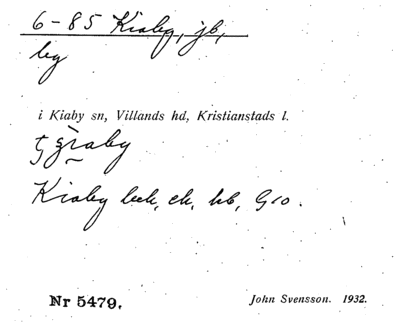 6-85 Kiaby, jb,
by
i Kiaby sn, Villands hd, Kristianstads l.
Kiaby bek, ek, hb, G10.
Nr 5479.
John Svensson. 1932.